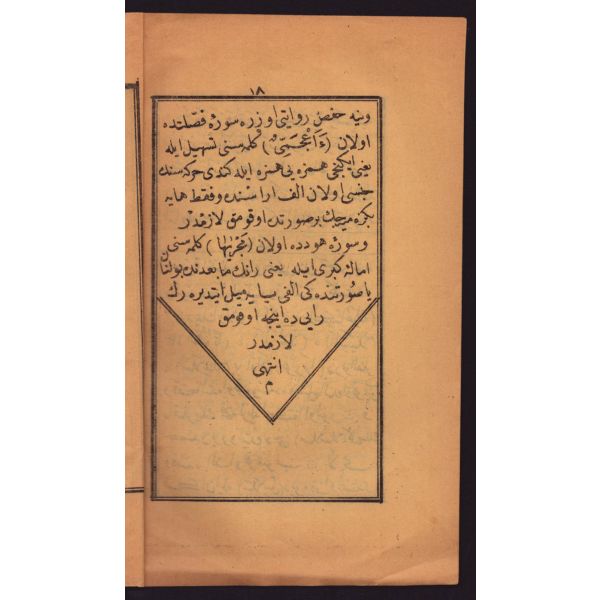 ١٨
وينه حفص روايتى اوزره سورۀ فصلتده
اولان (ءَاَعْجَمِىٌّ) كلمه سنى تسهيل ايله
يعنى ايكنجى همزه يى همزه ايله كندى حركه سنك
جنسى اولان الف اراسنده وفقط هايه
بكزه ميه جك بر صورتده اوقومق لازمدر
وسورۀ هودده اولان (مَجْرٰيهَا) كلمه سنى
امالۀ كبرى ايله يعنى رانك مابعدنده بولنان
يا صورتنده كى الفى يايه ميل ايتديره رك
رايى ده اينجه اوقومق
لازمدر
انتهى
م